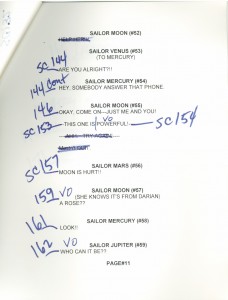 SAILOR MOON (#62)
SAILOR VENUS (#63)
(TO MERCURY)
SC 144
ARE YOU ALRIGHT?!!
SAILOR MERCURY (#54)
144 cont
HEY, SOMEBODY ANSWER THAT PHONE.
SAILOR MOON (#55)
146
OKAY, COME ON—JUST ME AND YOU!
1 VO
SC 153 THIS ONE IS POWERFUL! SC 154
SAILOR MARS (#56)
SC 157
MOON IS HURT!!
SAILOR MOON (#57)
159 VO (SHE KNOWS IT'S FROM DARIAN)
A ROSE??
SAILOR MERCURY (#58)
161
LOOK!!
SAILOR JUPITER (#59)
162 VO
WHO CAN IT BE??
PAGE#11